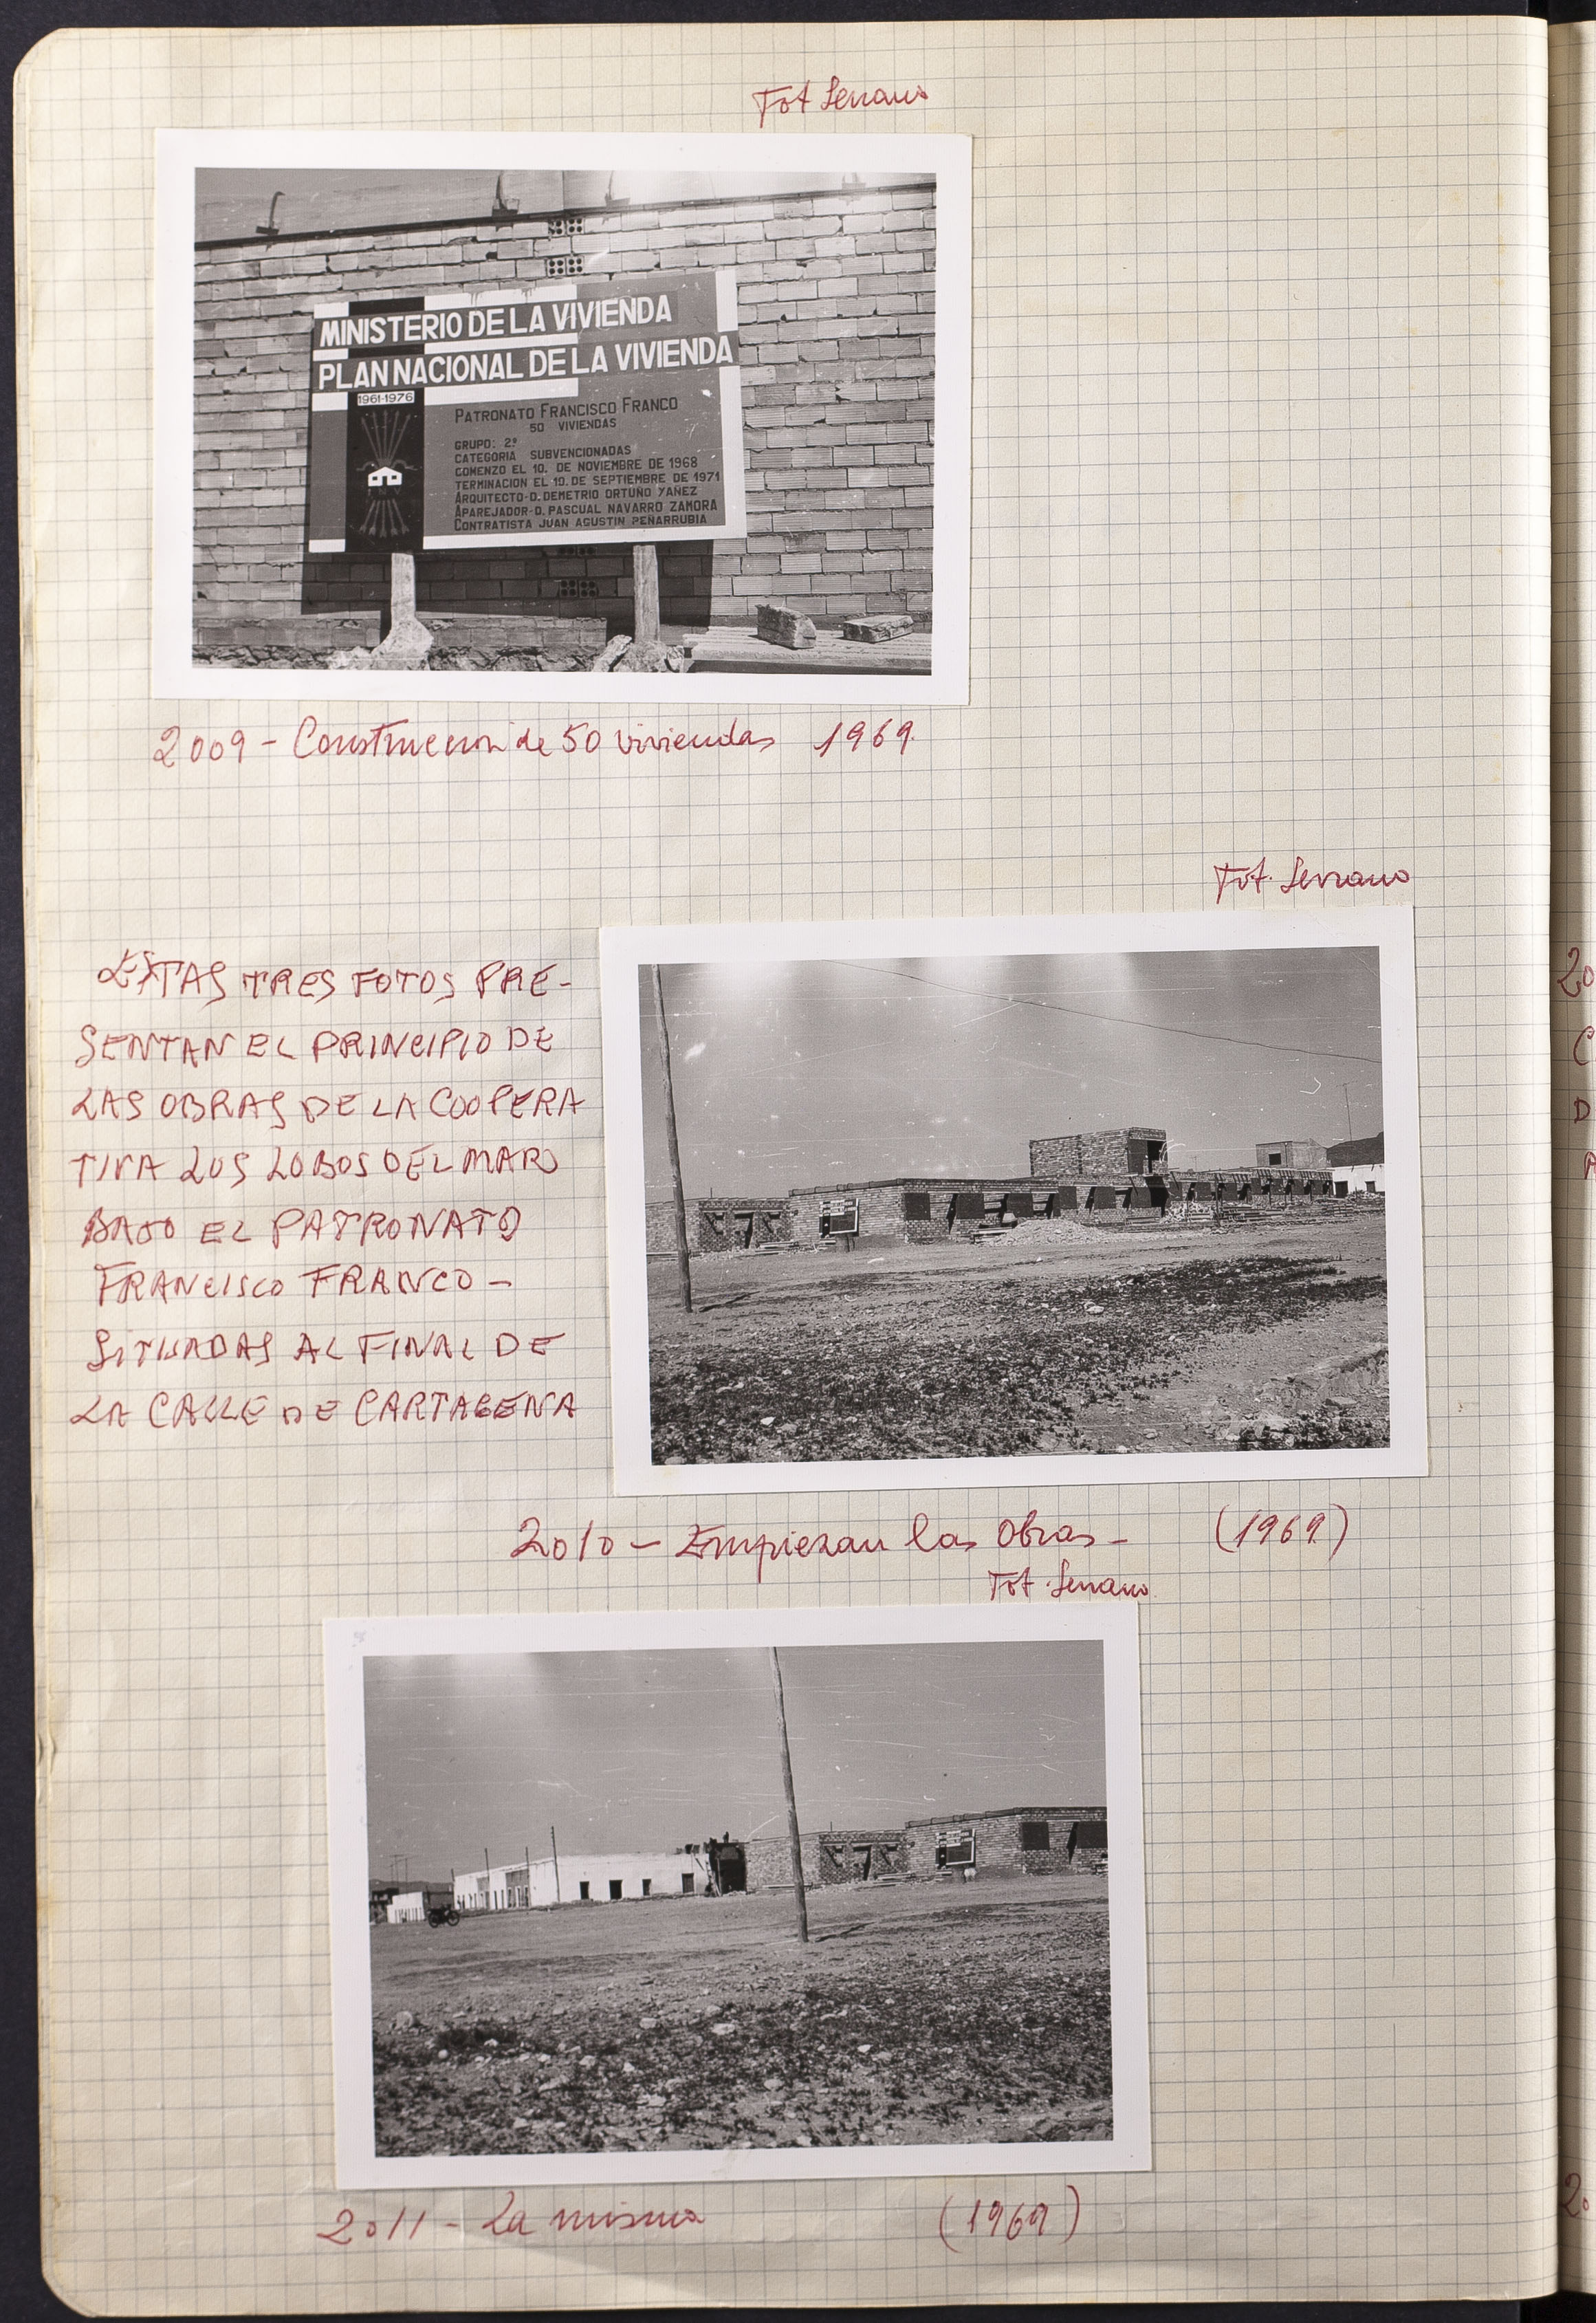 Fot Serrano
MINISTERIO DE LA VIVIENDA
PLAN NACIONAL DE LA VIVIENDA
1961-1976
PATRONATO FRANCISCO FRANCO
50 VIVIENDAS
GRUPO: 2º
CATEGORIA SUBVENCIONADAS
COMENZO EL 10. DE NOVIEMBRE DE 1968
TERMINACION EL 10. DE SEPTIEMBRE DE 1971
ARQUITECTO-D. DEMETRIO ORTUÑO YAÑEZ
APAREJADOR-D. PASCUAL NAVARRO ZAMORA
CONTRATISTA JUAN AGUSTIN PEÑARRUBIA
2009 - Construccion de 50 viviendas 1969.
Fot. Serrano
ESTAS TRES FOTOS PRE-
SENTAN EL PRINCIPIO DE
LAS OBRAS DE LA COOPERA
TIVA LOS LOBOS DEL MAR
BAJO EL PATRONATO
FRANCISCO FRANCO -
SITUADAS AL FINAL DE
LA CALLE DE CARTAGENA
2010 - Empiezan las Obras - (1969)
Fot. Serrano
2011 - La misma (1969)